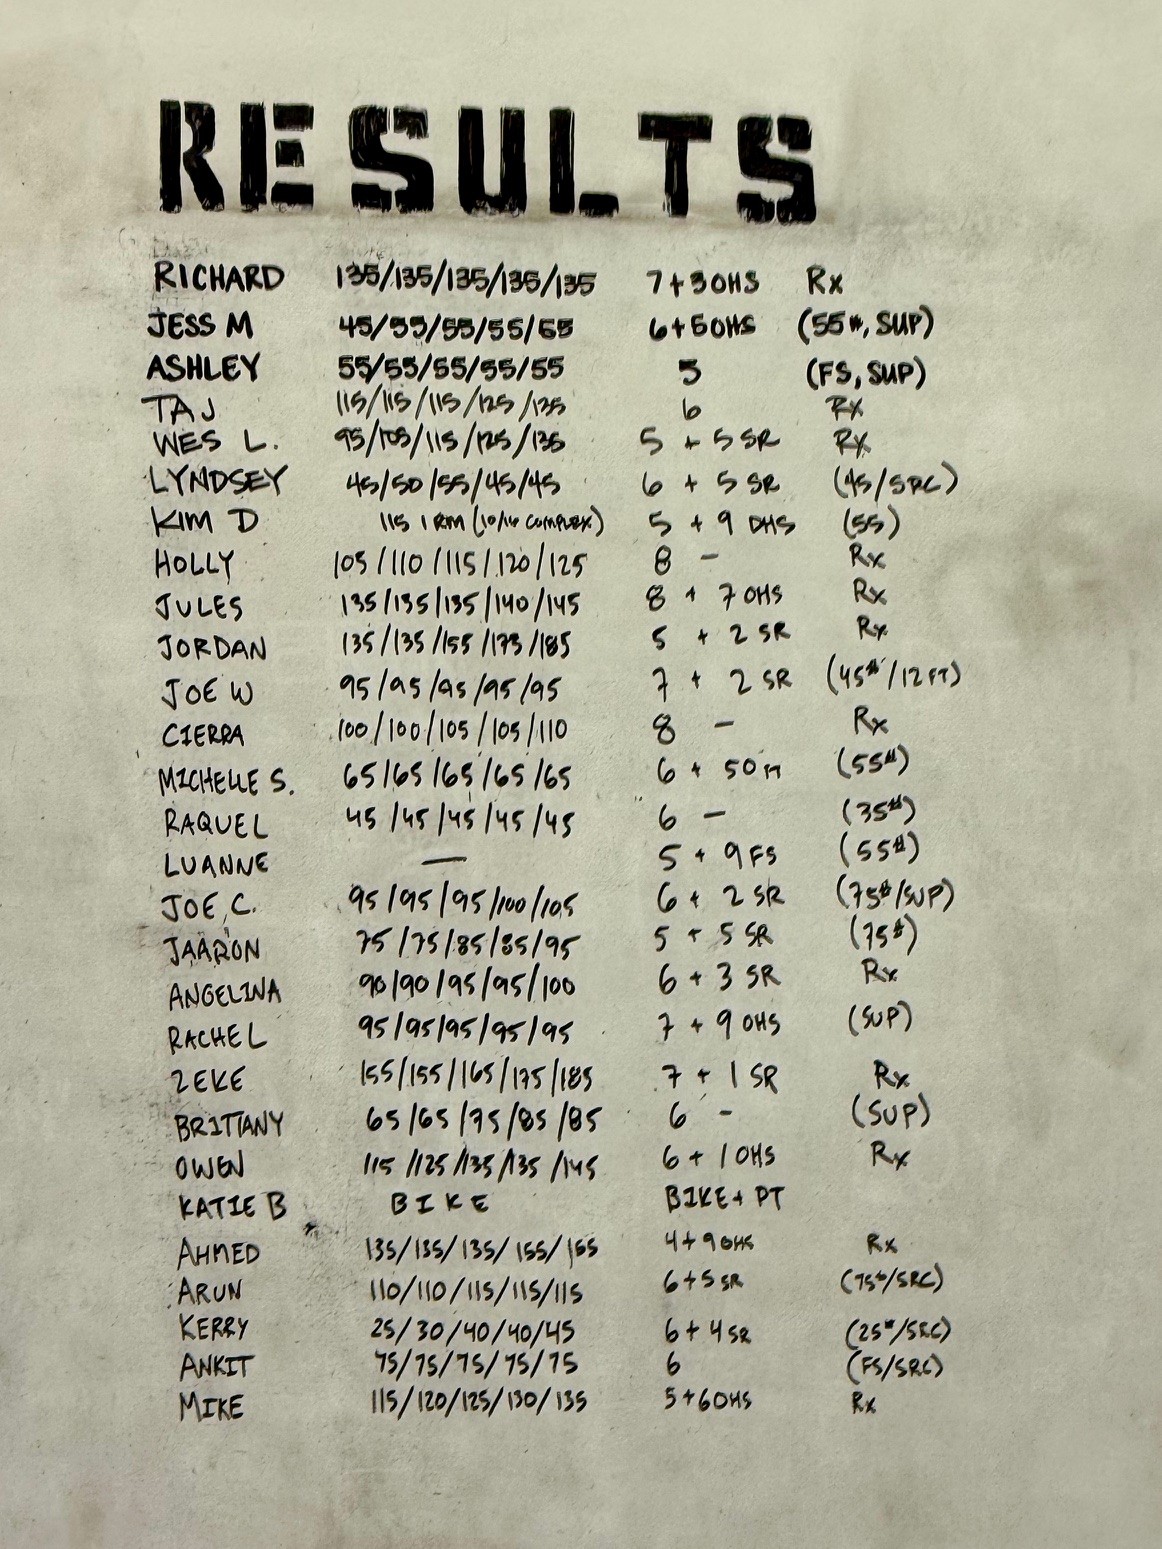 RESULTS
RICHARD 135/135/135/135/135 7+3OHS Rx
JESS M 45/55/55/55/55 6+5OHS (55#, SUP)
ASHLEY 55/55/55/55/55 5 (FS, SUP)
TAJ 115/115/115/125/135 6 Rx
WES L. 95/105/115/125/135 5 + 5 SR Rx
LYNDSEY 45/50/55/45/45 6 + 5 SR (45/SRC)
KIM D 115 1 RM (10/10 COMPLEX) 5 + 9 OHS (55)
HOLLY 105/110/115/120/125 8 - Rx
JULES 135/135/135/140/145 8 + 7 OHS Rx
JORDAN 135/135/155/175/185 5 + 2 SR Rx
JOE W 95/95/95/95/95 7 + 2 SR (45#/12FT)
CIERRA 100/100/105/105/110 8 - Rx
MICHELLE S. 65/65/65/65/65 6 + 5OH (55#)
RAQUEL 45/45/45/45/45 6 - (35#)
LUANNE — 5 + 9 FS (55#)
JOE C. 95/95/95/100/105 6 + 2 SR (75#/SUP)
JAARON 75/75/85/85/95 5 + 5 SR (75#)
ANGELINA 90/90/95/95/100 6 + 3 SR Rx
RACHEL 95/95/95/95/95 7 + 9 OHS (SUP)
ZEKE 155/155/165/175/185 7 + 1 SR Rx
BRITTANY 65/65/75/85/85 6 - (SUP)
OWEN 115/125/135/135/145 6 + 1 OHS Rx
KATIE B BIKE BIKE+ PT
AHMED 135/135/135/155/155 4+9OHS Rx
ARUN 110/110/115/115/115 6+5 SR (75#/SRC)
KERRY 25/30/40/40/45 6+4 SR (25#/SRC)
ANKIT 75/75/75/75/75 6 (FS/SRC)
MIKE 115/120/125/130/135 5+6OHS Rx